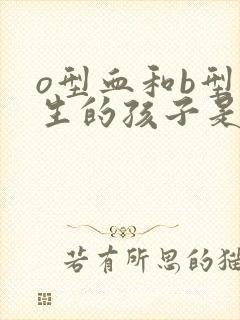 o型血和b型
生的孩子是
若有所思的猫